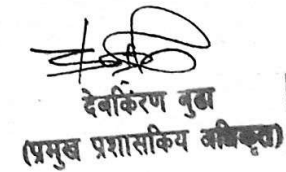 देबकिरण बुढा
(प्रमुख प्रशासकिय अधिकृत)